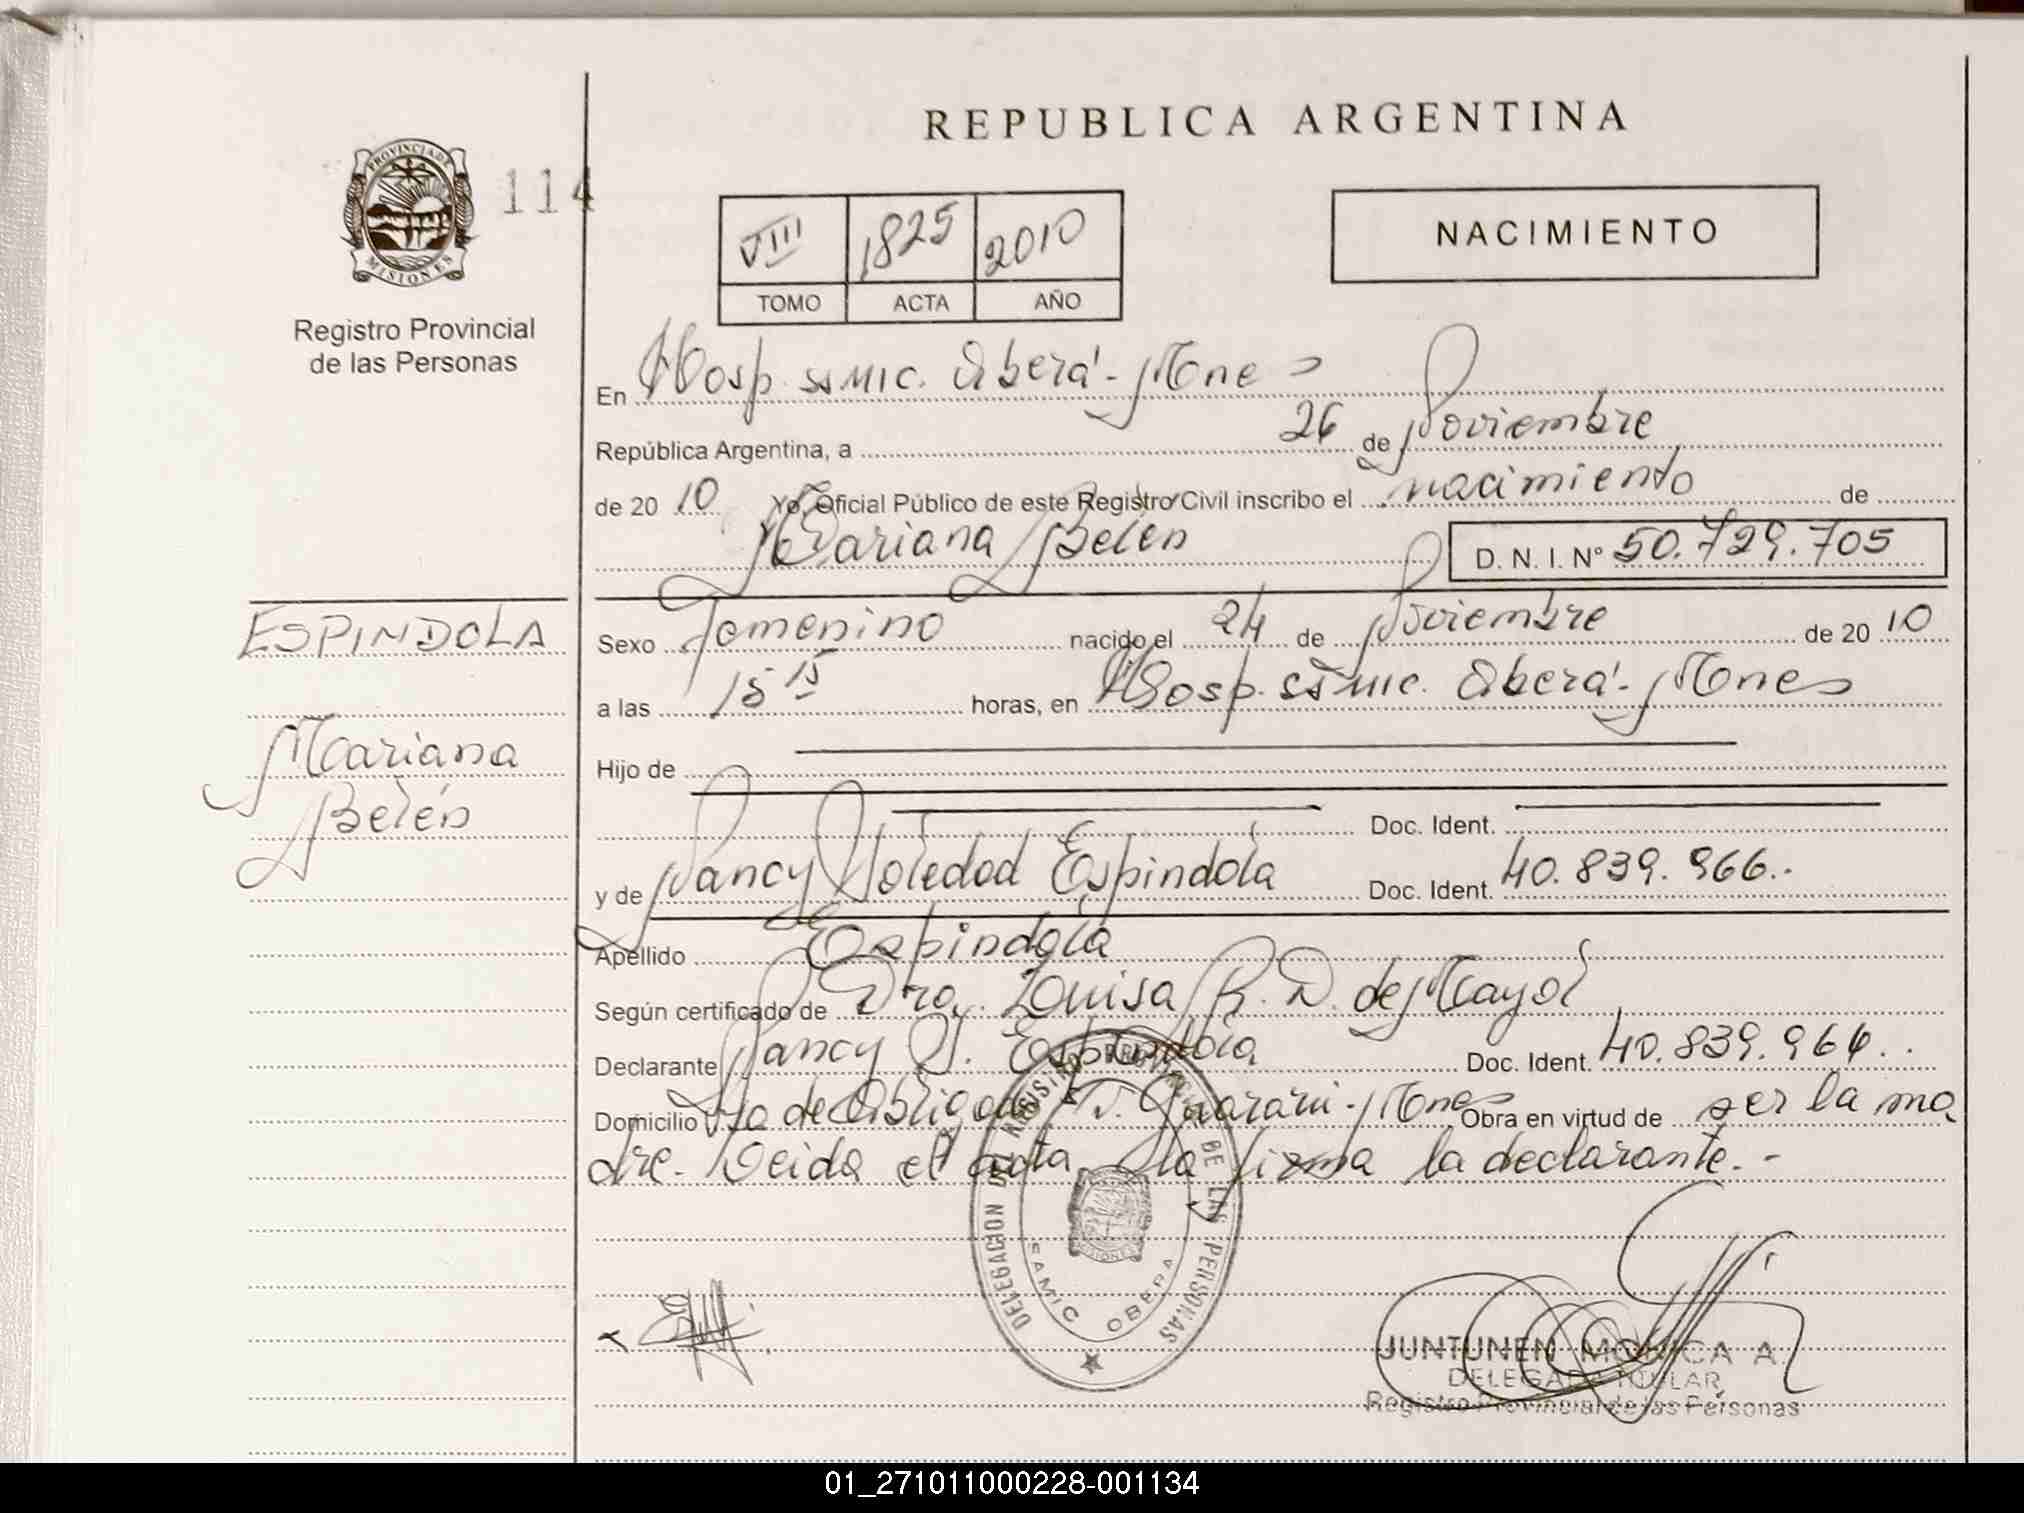 REPUBLICA ARGENTINA
PROVINCIA DE
MISIONES
114
Registro Provincial
de las Personas
VIII 1825 2010
TOMO ACTA AÑO
NACIMIENTO
En Hosp. SAMIC. Oberá - Mnes
República Argentina, a 26 de Noviembre
de 20 10 Yo, Oficial Público de este Registro Civil inscribo el nacimiento de
Mariana Belén D. N. I. Nº 50.729.705
ESPINDOLA
Mariana
Belén
Sexo Femenino nacido el 24 de Noviembre de 20 10
a las 15 15 horas, en Hosp. SAMIC. Oberá - Mnes
Hijo de
Doc. Ident.
y de Nancy Soledad Espindola Doc. Ident. 40.839.966..
Apellido Espindola
Según certificado de Dra. Luisa R. D. de Mayol
Declarante Nancy S. Espindola Doc. Ident. 40.839.966..
Domicilio de Obligado Guaraní - Mnes Obra en virtud de ser la ma
dre. Leida el acta la firma la declarante. -
DELEGACION DEL REGISTRO PROVINCIAL DE LAS PERSONAS
SAMIC OBERA
MISIONES
JUNTUNEN MONICA A
DELEGADA TITULAR
Registro Provincial de las Personas
01_271011000228-001134